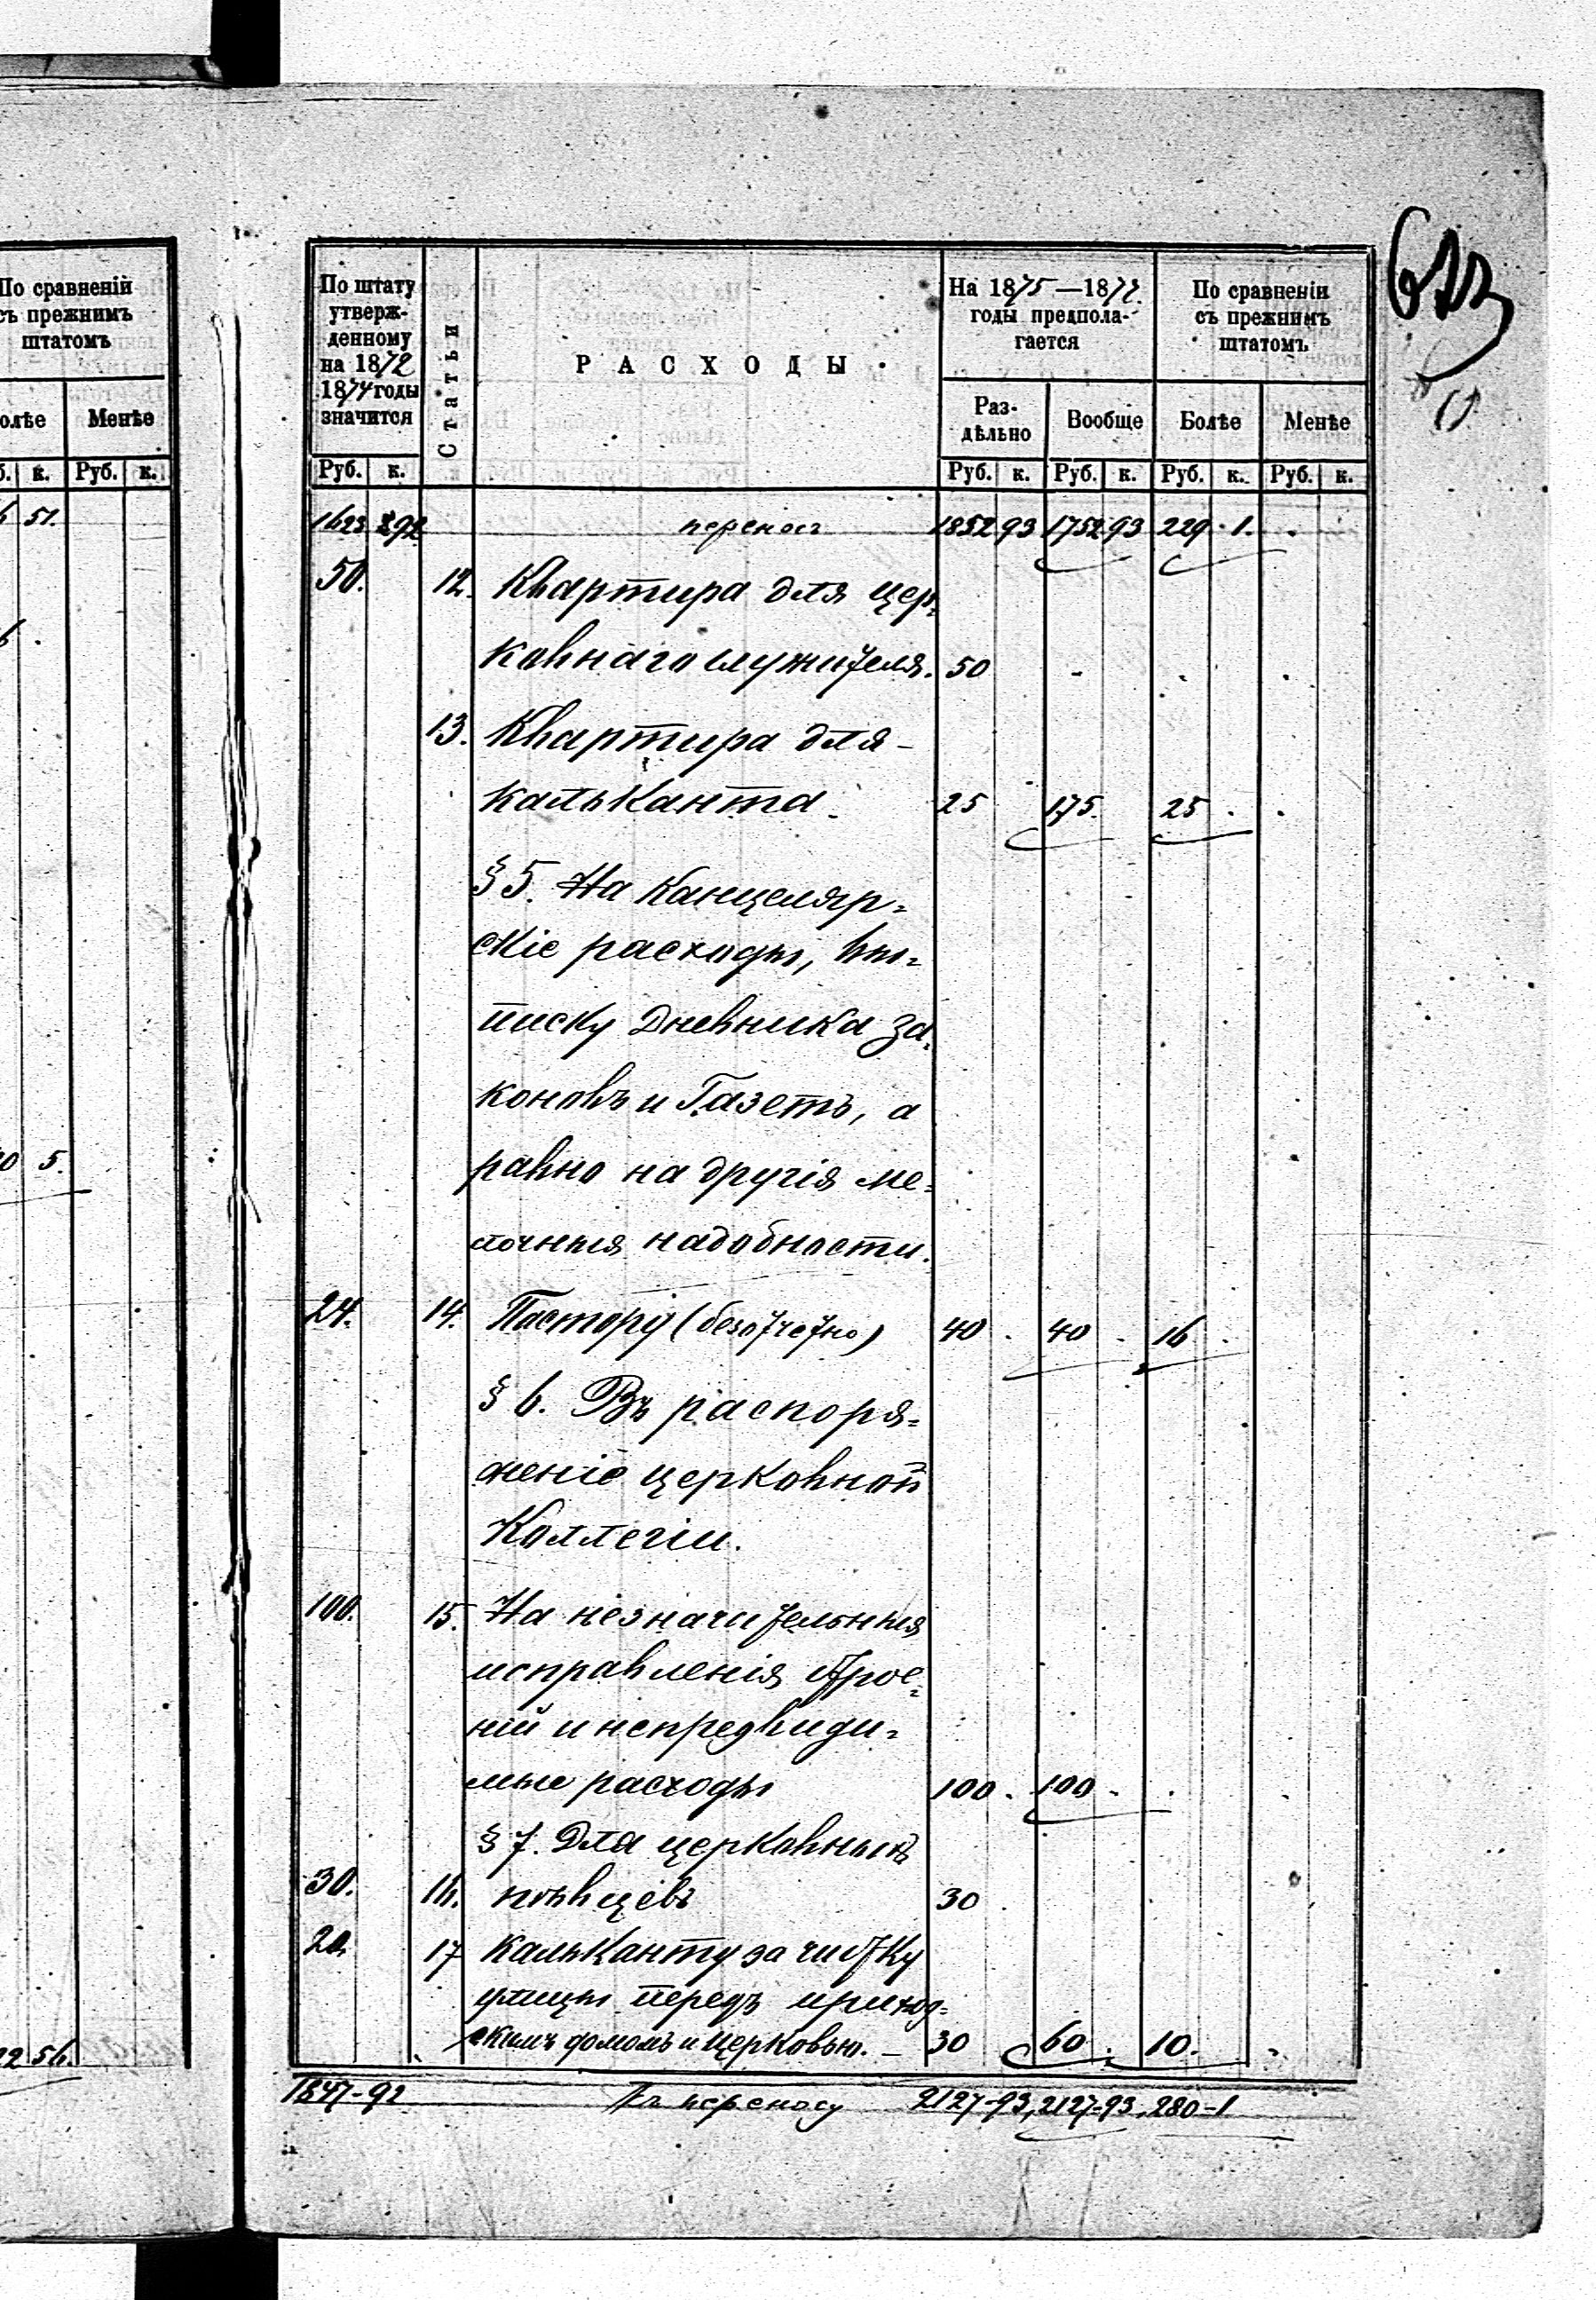 По сравненiй
съ прежнимъ
штатомъ
олѣе Менѣе
б. к. Руб. к.
51.
5.
По штату
утверж-
денному
на 1872
1874 годы
значится
Руб. к.
Статьи
РАСХОДЫ.
На 1875—187
годы предпола-
гается
Раз-
дѣльно
Вообще
Руб. к. Руб. к.
По сравненiи
съ прежнимъ
штатомъ
Болѣе Менѣе
Руб. к. Руб. к.
1623 92 переносъ 1852 93 1752 93 229 1.
50. 12. Квартира для цер-
ковнаго служителя. 50
13. Квартира для
калькантa 25 175. 25
§ 5. На канцеляр-
скiе расходы, вы-
писку Дневника За-
коновъ и Газетъ, а
равно на другiя ме-
лочныя надобности.
24. 14. Пастору (безотчетно) 40 40 16
§ 6. Въ распоря-
женiе церковной
Коллегiи.
100. 15. На незначительныя
исправленiя строе-
нiй и непредвиди-
мые расходы 100 100
§ 7. Для церковныхъ
30. 16. пѣвцевъ 30
20. 17 Кальканту за чистку
улицы передъ приход-
скимъ домомъ и церковью. 30 60 10.
1847-92 Къ переносу 2127-93, 2127-93, 280-1